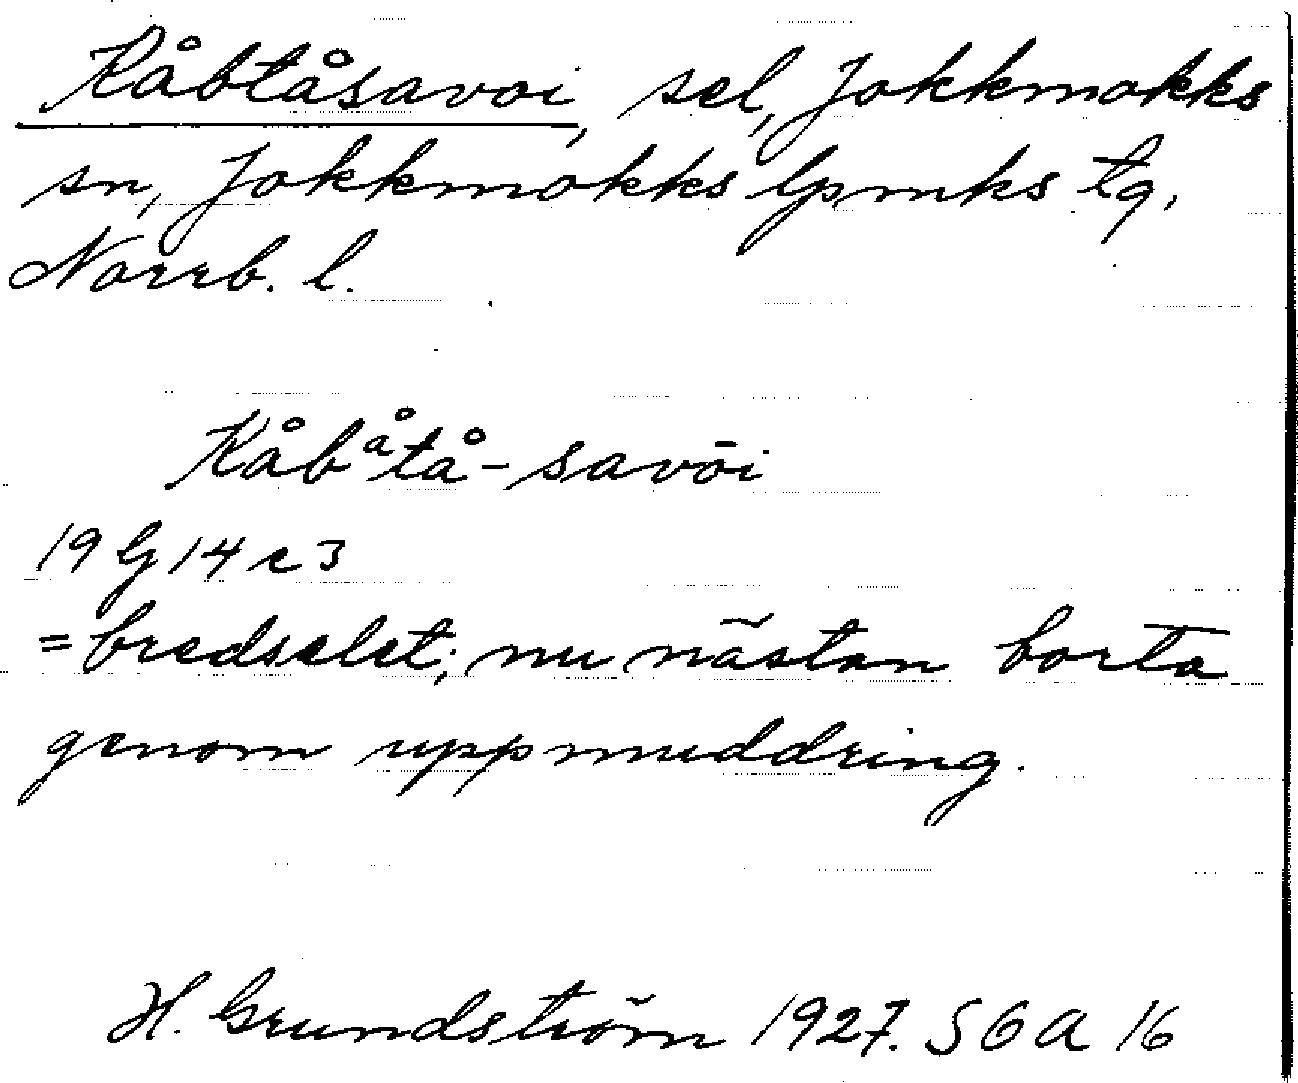 Kåbtåsavoi, sel, Jokkmokks
sn, Jokkmokks lpmks tg,
Norrb. l.
Kåbåtå-savōi
19 G 14 c 3
= bredselet; nu nästan borta
genom uppmuddring.
H. Grundström 1927. SOA 16